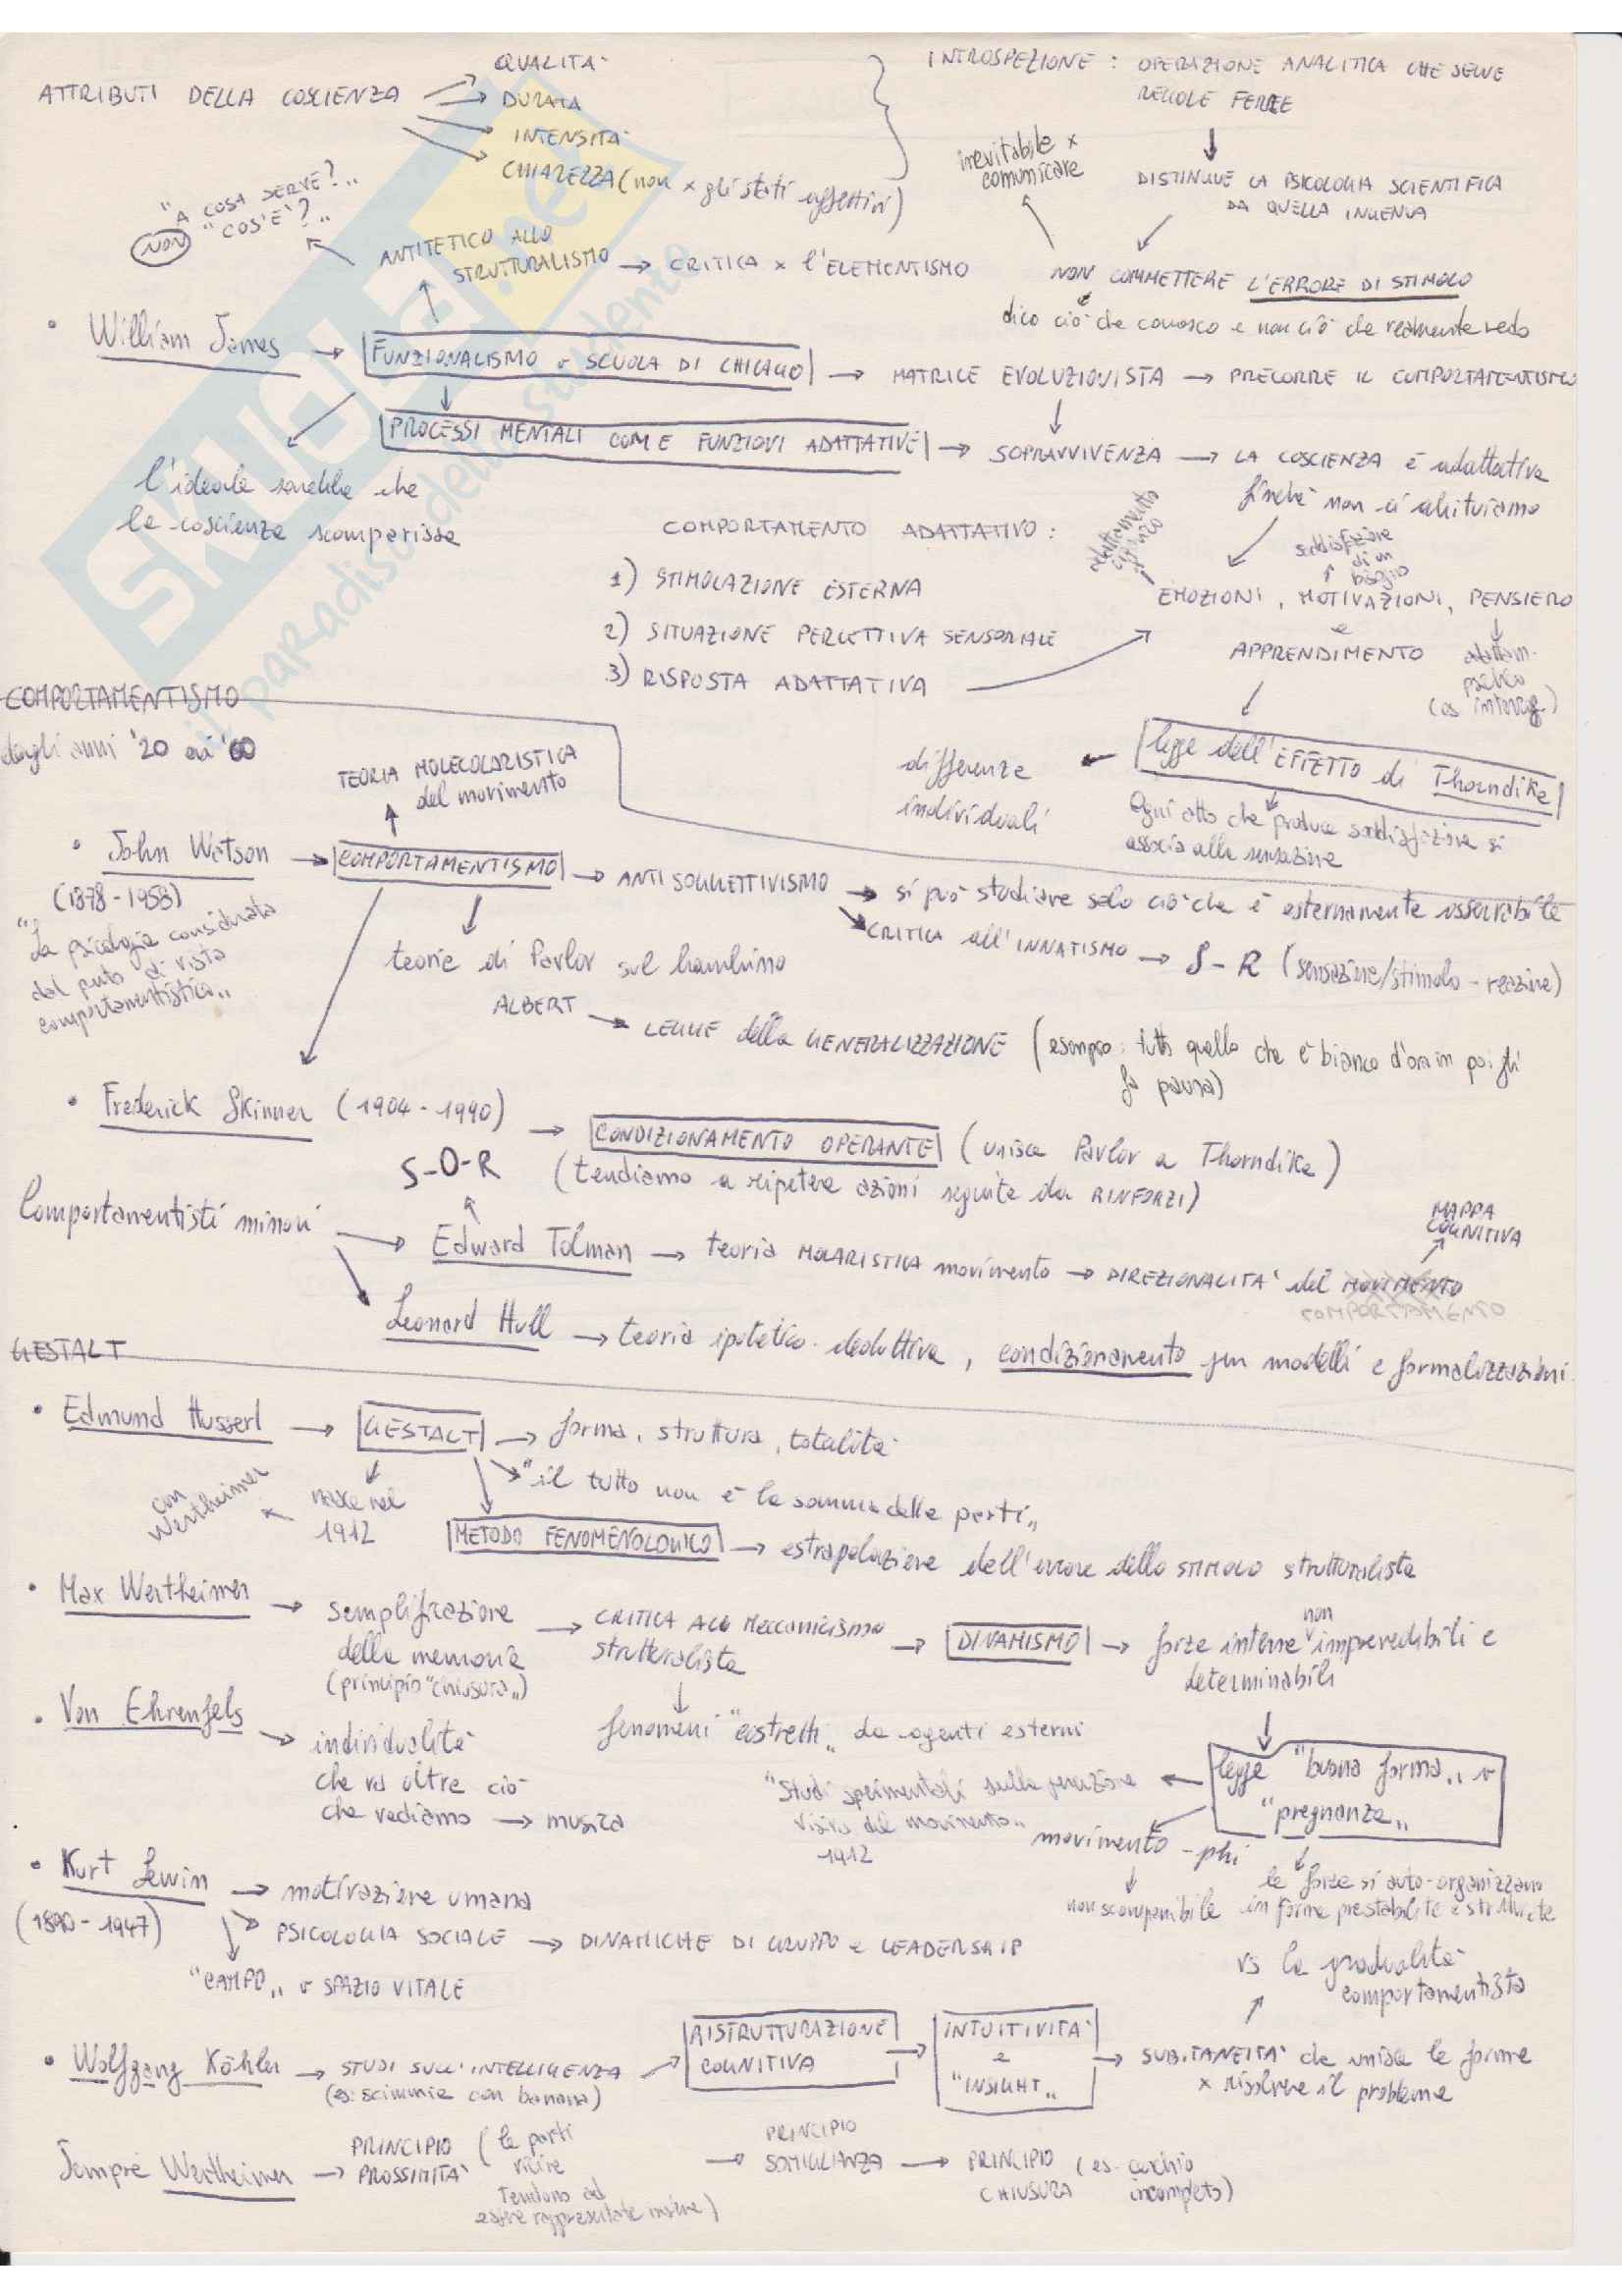 ATTRIBUTI DELLA COSCIENZA
QUALITA'
DURATA
INTENSITA'
CHIAREZZA (non x gli stati affettivi)
INTROSPEZIONE: OPERAZIONE ANALITICA CHE SEGUE
REGOLE FERREE
DISTINGUE LA PSICOLOGIA SCIENTIFICA
DA QUELLA INGENUA
inevitabile x
comunicare
NON COMMETTERE L'ERRORE DI STIMOLO
dico ciò che conosco e non ciò che realmente vedo
"A COSA SERVE?"
NON "COS'E'?"
ANTITETICO ALLO
STRUTTURALISMO → CRITICA x l'ELEMENTISMO
• William James → FUNZIONALISMO o SCUOLA DI CHICAGO → MATRICE EVOLUZIONISTA → PRECORRE IL COMPORTAMENTISMO
PROCESSI MENTALI COME FUNZIONI ADATTATIVE → SOPRAVVIVENZA → LA COSCIENZA È adattativa
finché non ci abituiamo
l'ideale sarebbe che
la coscienza scomparisse
COMPORTAMENTO ADATTATIVO:
1) STIMOLAZIONE ESTERNA
2) SITUAZIONE PERCETTIVA SENSORIALE
3) RISPOSTA ADATTATIVA
adattamento
soddisfazione
di un
bisogno
EMOZIONI, MOTIVAZIONI, PENSIERO
e
APPRENDIMENTO
adattam.
pratico
legge dell'EFFETTO di Thorndike
Ogni atto che produce soddisfazione si
associa alla sensazione
differenze
individuali
COMPORTAMENTISMO
dagli anni '20 ai '60
TEORIA MOLECOLARISTICA
del movimento
• John Watson → COMPORTAMENTISMO → ANTISOGGETTIVISMO → si può studiare solo ciò che è esternamente osservabile
(1878-1958)
CRITICA all'INNATISMO → S-R (sensazione/stimolo - reazione)
"La psicologia considerata
dal punto di vista
comportamentistico"
teorie di Pavlov sul bambino
ALBERT → LEGGE della GENERALIZZAZIONE (esempio: tutto quello che è bianco d'ora in poi gli
fa paura)
• Frederick Skinner (1904-1990) → CONDIZIONAMENTO OPERANTE (unisce Pavlov a Thorndike)
(tendiamo a ripetere azioni seguite da RINFORZI)
S-O-R
Comportamentisti minori
Edward Tolman → teoria MOLARISTICA movimento → DIREZIONALITA' del MOVIMENTO
COMPORTAMENTO
MAPPA
COGNITIVA
Leonard Hull → teoria ipotetico-deduttiva, condizionamento per modelli e formalizzazioni.
GESTALT
• Edmund Husserl → GESTALT → forma, struttura, totalità
"il tutto non è la somma delle parti"
nasce nel
1912
con
Wertheimer
METODO FENOMENOLOGICO → estrapolazione dell'errore dello STIMOLO strutturalista
• Max Wertheimer → semplificazione
della memoria
(principio "chiusura")
CRITICA ALL Meccanicismo
strutturalista
DINAMISMO → forze interne non imprevedibili e
determinabili
fenomeni "costretti" da agenti esterni
• Von Ehrenfels → individualità
che va oltre ciò
che vediamo → musica
legge "buona forma" o
"pregnanza"
"Studi sperimentali sulla percezione
visiva del movimento"
1912
movimento-phi
non scomponibile
le forze si auto-organizzano
in forme prestabilite e strutturate
• Kurt Lewin → motivazione umana
(1890-1947)
PSICOLOGIA SOCIALE → DINAMICHE DI GRUPPO e LEADERSHIP
"CAMPO" o SPAZIO VITALE
vs la gradualità
comportamentista
• Wolfgang Köhler → STUDI SULL'INTELLIGENZA
(es. scimmie con banana)
RISTRUTTURAZIONE
COGNITIVA
INTUITIVITA'
e
"INSIGHT"
SUBITANEITA' che unisce le forme
x risolvere il problema
Sempre Wertheimer → PRINCIPIO
PROSSIMITA'
(le parti
vicine
tendono ad
essere rappresentate insieme)
PRINCIPIO
SOMIGLIANZA → PRINCIPIO
CHIUSURA
(es. cerchio
incompleto)
SKUOLA.net
il paradiso dello studente